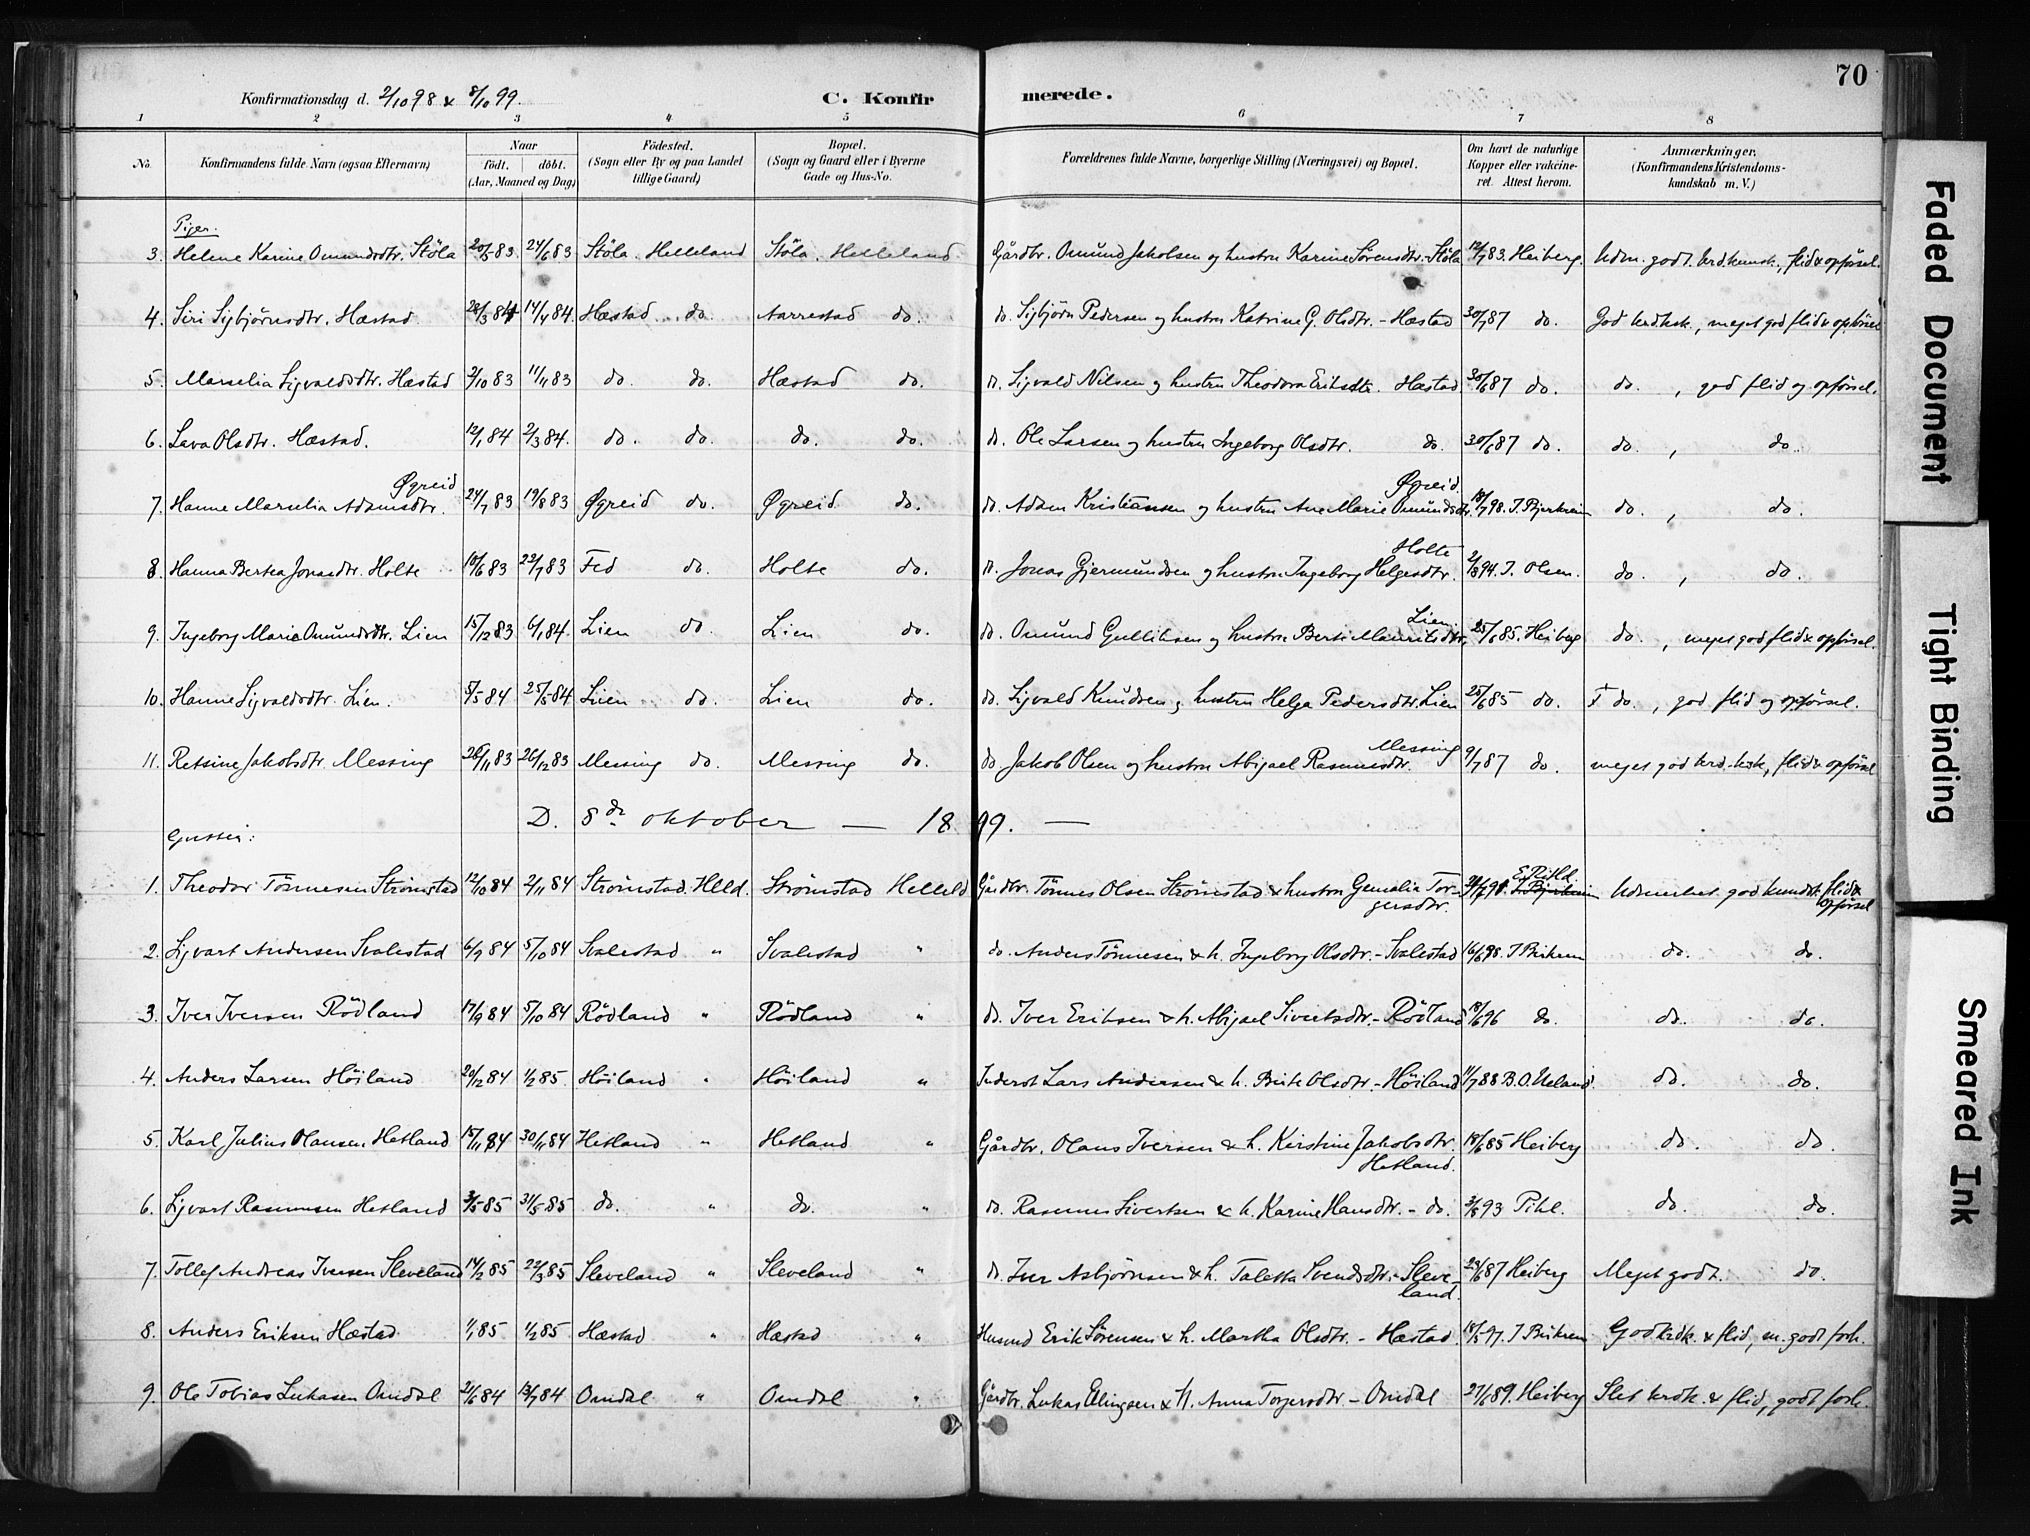 70
Konfirmationsdag d. 2/10 98 & 8/10 99.
C. Konfirmerede.
1 2 3 4 5 6 7 8
No. Konfirmandens fulde Navn (ogsaa Efternavn) Naar født. døbt. (Aar, Maaned og Dag) Fødested. (Sogn eller By og paa Landet tillige Gaard) Bopæl. (Sogn og Gaard eller i Byerne Gade og Hus-No. Forældrenes fulde Navne, borgerlige Stilling (Næringsvei) og Bopæl. Om havt de naturlige Kopper eller vakcineret. Attest herom. Anmærkninger. (Konfirmandens Kristendomskundskab m. V.)
Piger.
3. Helene Karine Omundsdtr. Støla 20/5 83 24/6 83 Støla. Helleland Støla. Helleland. Gårdbr. Omund Jakobsen og hustru Karine Sörensdtr. Støla 12/7 83. Heiberg. Udm. godt krd.kunsk., flid & opförsel.
4. Siri Sigbjørnsdtr. Hæstad 28/3 84 14/4 84. Hæstad do. Aarrestad do. do. Sigbjörn Pedersen og hustru Katrine G. Olsdtr. - Hæstad 30/7 87 do. God krd.ksk., meget god flid & opförsel
5. Marselia Sigvaldsdtr. Hæstad 2/10 83 11/11 83 do. do. Hæstad do. do. Sigvald Nilsen og hustru Theodora Eriksdtr. Hæstad. 30/6 87 do. do. , god flid og opförsel.
6. Lava Olsdtr. Hæstad. 12/1 84 2/3 84. do. do. do. do. do. Ole Larsen og hustru Ingeborg Olsdtr. do. 30/6 87 do. do. , do.
7. Hanne Marselia Adamsdtr. Øgreid 24/7 83 19/8 83 Øgreid do. Øgreid do. do. Adam Kristiansen og hustru Ane Marie Omundsdtr. Øgreid. 18/7 98. T. Bjerkreim do. , do.
8. Hanna Bertea Jonasdtr. Holte 10/6 83 22/7 83 Fed do. Holte do. do. Jonas Gjermundsen og hustru Ingeborg Helgesdtr. Holte 2/8 94. T. Olsen. do. , do.
9. Ingeborg Marie Omundsdtr. Lien 15/12 83 6/1 84. Lien do. Lien do. do. Omund Gulliksen og hustru Berte Mauritsdtr. Lien 25/6 85. Heiberg do. , meget god flid & opförsel.
10. Hanne Sigvaldsdtr. Lien. 5/5 84 25/5 84 Lien do. Lien do. do. Sigvald Knudsen og hustru Helga Pedersdtr. Lien 25/6 85 do. do. , god flid og opförsel.
11. Retsine Jakobsdtr. Messing 26/11 83 26/12 83 Messing do. Messing do. do. Jakob Olsen og hustru Abigael Rasmusdtr. Messing 9/7 87 do. meget god krd.-ksk, flid & opförsel
D. 8de oktober — 1899. —
Gutter:
1. Theodor Tönnesen Strømstad 12/10 84 2/11 84 Strømstad. Helld. Strømstad Hellel. Gårdbr. Tönnes Olsen Strømstad & hustru Gemalia Torgersdtr. Udmerket god kundsk. flid & opførsel
2. Sigvart Andersen Svalestad 6/9 84 5/10 84 Svalestad " Svalestad " do. Anders Tönnesen & h. Ingeborg Olsdtr. - Svalestad 16/6 98. T Birkrem do. do.
3. Iver Iversen Rödland 17/9 84 5/10 84 Rödland " Rödland " do. Iver Eriksen & h. Abigael Sivertsdtr. - Rödland 18/6 96 do. do. do.
4. Anders Larsen Höiland 20/12 84 1/2 85. Höiland " Höiland " Inderst Lars Andersen & h. Berte Olsdtr. - Höiland 11/7 88 B. O. Ueland. do. do.
5. Karl Julius Olausen Hetland 15/11 84 30/11 84 Hetland " Hetland " Gårdbr. Olaus Iversen & h. Kirstine Jakobsdtr. Hetland. 18/6 85 Heiberg do. do.
6. Sigvart Rasmusen Hetland 3/5 85 31/5 85 do. " do. " do. Rasmus Sivertsen & h. Karine Hansdtr. - do. 3/8 93 Pihl. do. do.
7. Tollef Andreas Iversen Sleveland 14/2 85 22/3 85 Sleveland " Sleveland " do. Iver Asbjørnsen & h. Taletta Svendsdtr. - Sleveland. 23/6 87 Heiberg Meget godt. do.
8. Anders Eriksen Hæstad 1/1 85 1/2 85 Hæstad " Hæstad " Husmd Erik Sörensen & h. Martha Olsdtr. - Hæstad. 18/5 97. T Birkrem God krdk. & flid, m. godt forh.
9. Ole Tobias Lukasen Omdal 21/6 84 13/7 84 Omdal " Omdal " Gårdbr. Lukas Ellingsen & h. Anna Torgersdtr - Omdal 27/6 89. Heiberg Slet krdk. & flid, godt forh.
Faded Document
Tight Binding
Smeared Ink